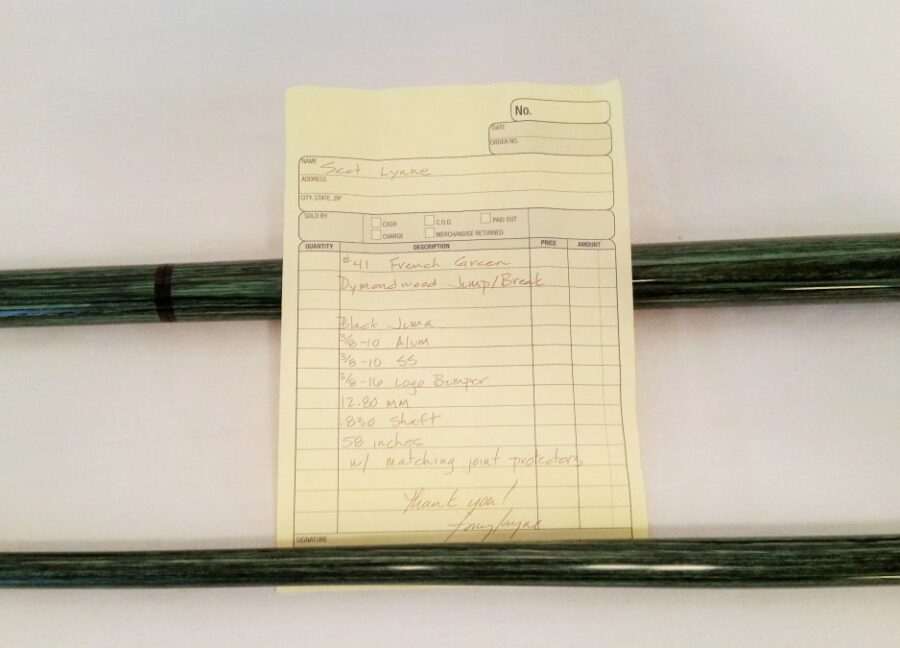 No.
DATE
ORDER NO.
NAME Scot Lynne
ADDRESS
CITY, STATE, ZIP
SOLD BY CASH C.O.D. PAID OUT
CHARGE MERCHANDISE RETURNED
QUANTITY DESCRIPTION PRICE AMOUNT
#41 French Green
Dymondwood Jump/Break
Black Juma
3/8-10 Alum
3/8-10 SS
3/8-16 Logo Bumper
12.80 mm
.830 shaft
58 inches
w/ matching joint protectors
Thank you!
SIGNATURE